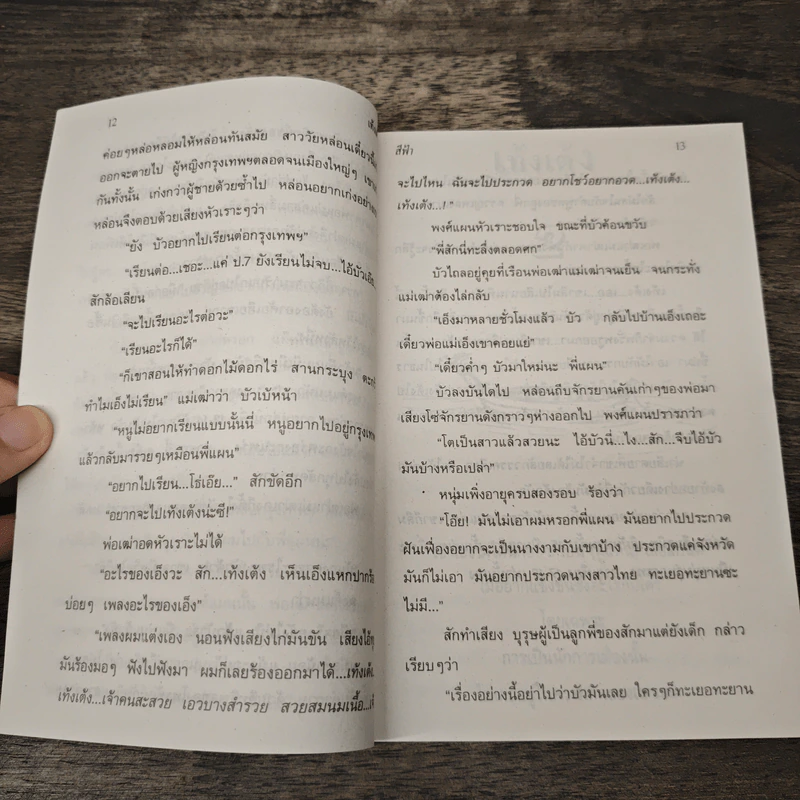 12
ค่อยๆหล่อหลอมให้หล่อนทันสมัย สาววัยหล่อนเดี๋ยวนี้
ออกจะตายไป ผู้หญิงกรุงเทพฯตลอดจนเมืองใหญ่ๆ
กันทั้งนั้น เก่งกว่าผู้ชายด้วยซ้ำไป หล่อนอยากเก่งอย่าง
หล่อนจึงตอบด้วยเสียงหัวเราะๆว่า
“ยัง บัวอยากไปเรียนต่อกรุงเทพฯ”
“เรียนต่อ...เชอะ...แค่ ป.7 ยังเรียนไม่จบ...ไอ้บัวเอ๊ย
สักล้อเลียน
“จะไปเรียนอะไรต่อวะ”
“เรียนอะไรก็ได้”
“ก็เขาสอนให้ทำดอกไม้ดอกไร่ สานกระบุง
ทำไมเอ็งไม่เรียน” แม่เฒ่าว่า บัวเบ้หน้า
“หนูไม่อยากเรียนแบบนั้นนี่ หนูอยากไปอยู่กรุงเทพ
แล้วกลับมารวยๆเหมือนพี่แผน”
“อยากไปเรียน...โธ่เอ๊ย...” สักขัดอีก
“อยากจะไปเท้งเต้งน่ะซี!”
พ่อเฒ่าอดหัวเราะไม่ได้
“อะไรของเอ็งวะ สัก...เท้งเต้ง เห็นเอ็งแหกปากร้อง
บ่อยๆ เพลงอะไรของเอ็ง”
“เพลงผมแต่งเอง นอนฟังเสียงไก่มันขัน เสียงไอ้
มันร้องมอๆ ฟังไปฟังมา ผมก็เลยร้องออกมาได้...เท้งเต้ง
เท้งเต้ง...เจ้าคนสะสวย เอวบางสำรวย สวยสมนมเนื้อ...
สีฟ้า
13
จะไปไหน ฉันจะไปประกวด อยากโชว์อยากอวด...เท้งเต้ง...
เท้งเต้ง...!”
พงศ์แผนหัวเราะชอบใจ ขณะที่บัวค้อนขวับ
“พี่สักนี่ทะลึ่งตลอดศก”
บัวไถลอยู่คุยที่เรือนพ่อเฒ่าแม่เฒ่าจนเย็น จนกระทั่ง
แม่เฒ่าต้องไล่กลับ
“เอ็งมาหลายชั่วโมงแล้ว บัว กลับไปบ้านเอ็งเถอะ
เดี๋ยวพ่อแม่เอ็งเขาคอยแย่”
“เดี๋ยวค่ำๆ บัวมาใหม่นะ พี่แผน”
บัวลงบันไดไป หล่อนถีบจักรยานคันเก่าๆของพ่อมา
เสียงโซ่จักรยานดังกราวๆห่างออกไป พงศ์แผนปรารภว่า
“โตเป็นสาวแล้วสวยนะ ไอ้บัวนี่...ไง...สัก...จีบไอ้บัว
มันบ้างหรือเปล่า”
หนุ่มเพิ่งอายุครบสองรอบ ร้องว่า
“โอ๊ย! มันไม่เอาผมหรอกพี่แผน มันอยากไปประกวด
ฝันเฟื่องอยากจะเป็นนางงามกับเขาบ้าง ประกวดแค่จังหวัด
มันก็ไม่เอา มันอยากประกวดนางสาวไทย ทะเยอทะยานซะ
ไม่มี...”
สักทำเสียง บุรุษผู้เป็นลูกพี่ของสักมาแต่ยังเด็ก กล่าว
เรียบๆว่า
“เรื่องอย่างนี้อย่าไปว่าบัวมันเลย ใครๆก็ทะเยอทะยาน